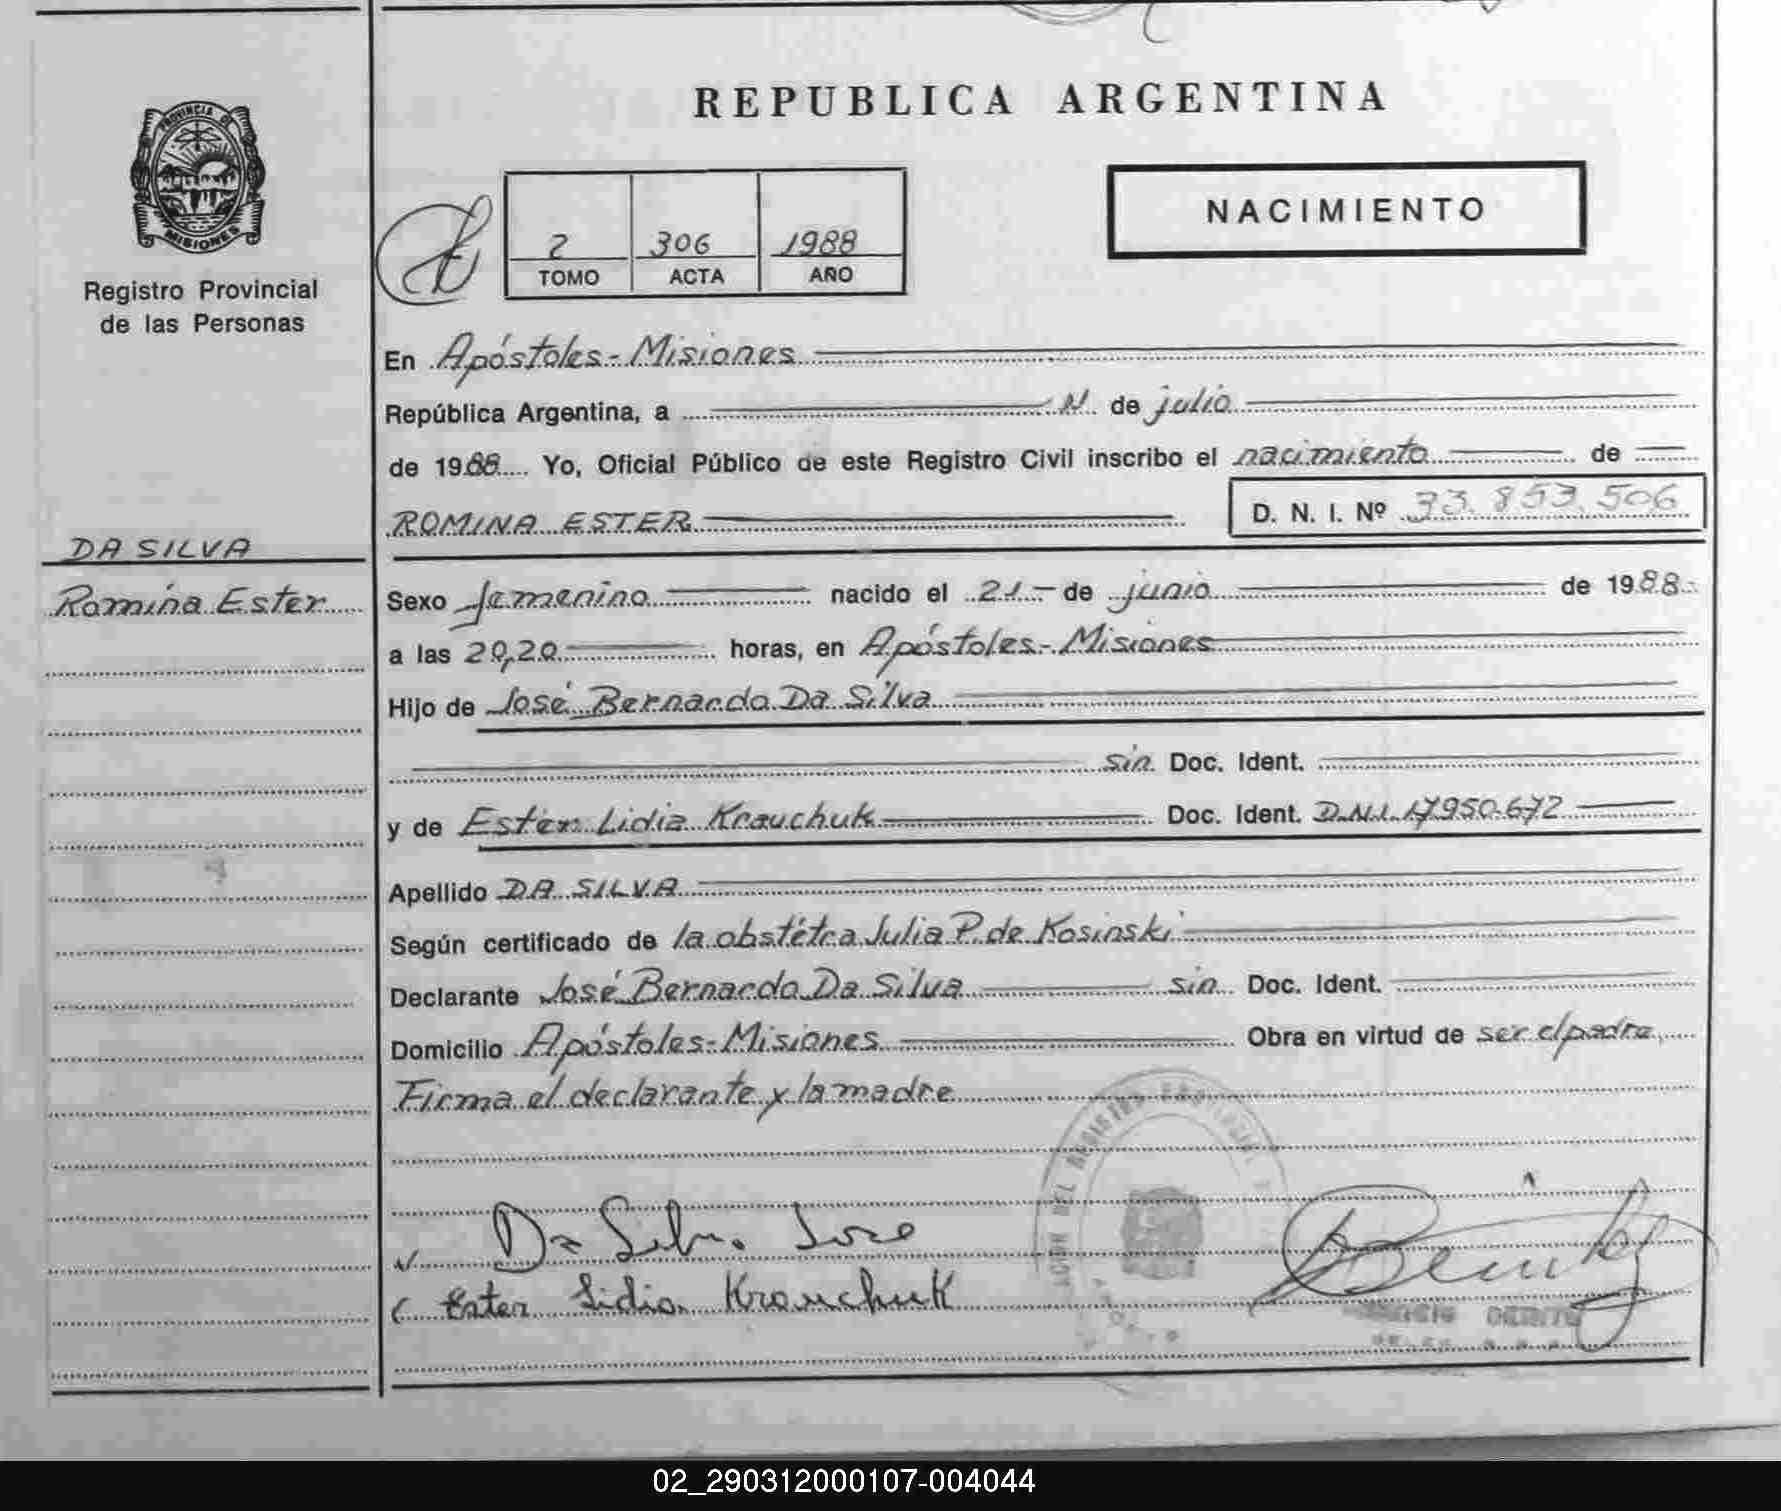 REPUBLICA ARGENTINA
PROVINCIA DE
MISIONES
Registro Provincial
de las Personas
2 306 1988
TOMO ACTA AÑO
NACIMIENTO
En Apóstoles - Misiones
República Argentina, a de julio
de 1988 Yo, Oficial Público de este Registro Civil inscribo el nacimiento de
ROMINA ESTER D. N. I. Nº 33.853.506
DA SILVA
Romina Ester
Sexo femenino nacido el 21 - de junio de 1988.
a las 20,20 horas, en Apóstoles - Misiones
Hijo de José Bernardo Da Silva
sin Doc. Ident.
y de Ester Lidia Krauchuk Doc. Ident. D.N.I. 17950.672
Apellido DA SILVA
Según certificado de la obstétra Julia P. de Kosinski
Declarante José Bernardo Da Silva sin Doc. Ident.
Domicilio Apóstoles - Misiones Obra en virtud de ser el padre
Firma el declarante y la madre
Da Silva Jose
Ester Lidia Krauchuk
02_290312000107-004044